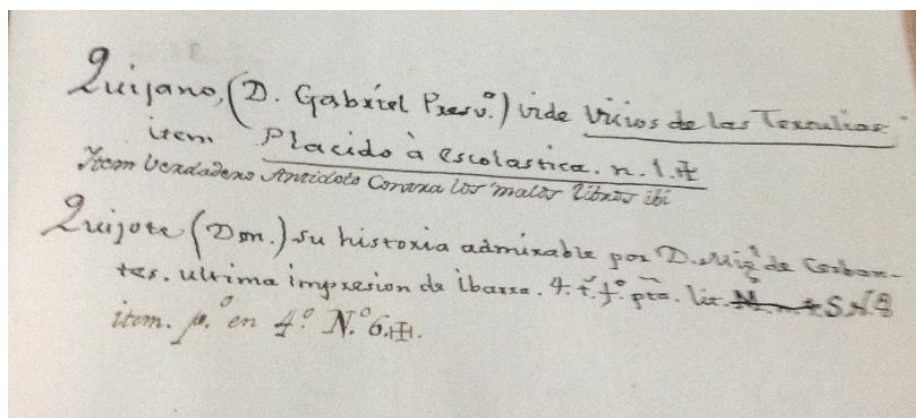 Quijano, (D. Gabriel Presvº.) vide Vicios de las Tertulias
item Placido à escolastica. n. 1.
Item Verdadero Antidoto Contra los malos libros ibi
Quijote (Dn.) su historia admirable por D. Migl de Cerban-
tes. ultima impresion de Ibarra. 4. t. fº. pta. lit.
item. pº. en 4º. N.º 6.